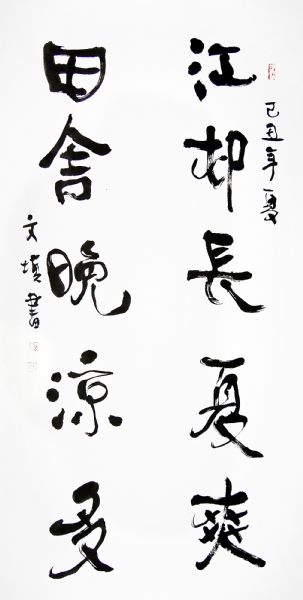 己丑年夏
江邨長夏爽
田舍晚涼多
文 書